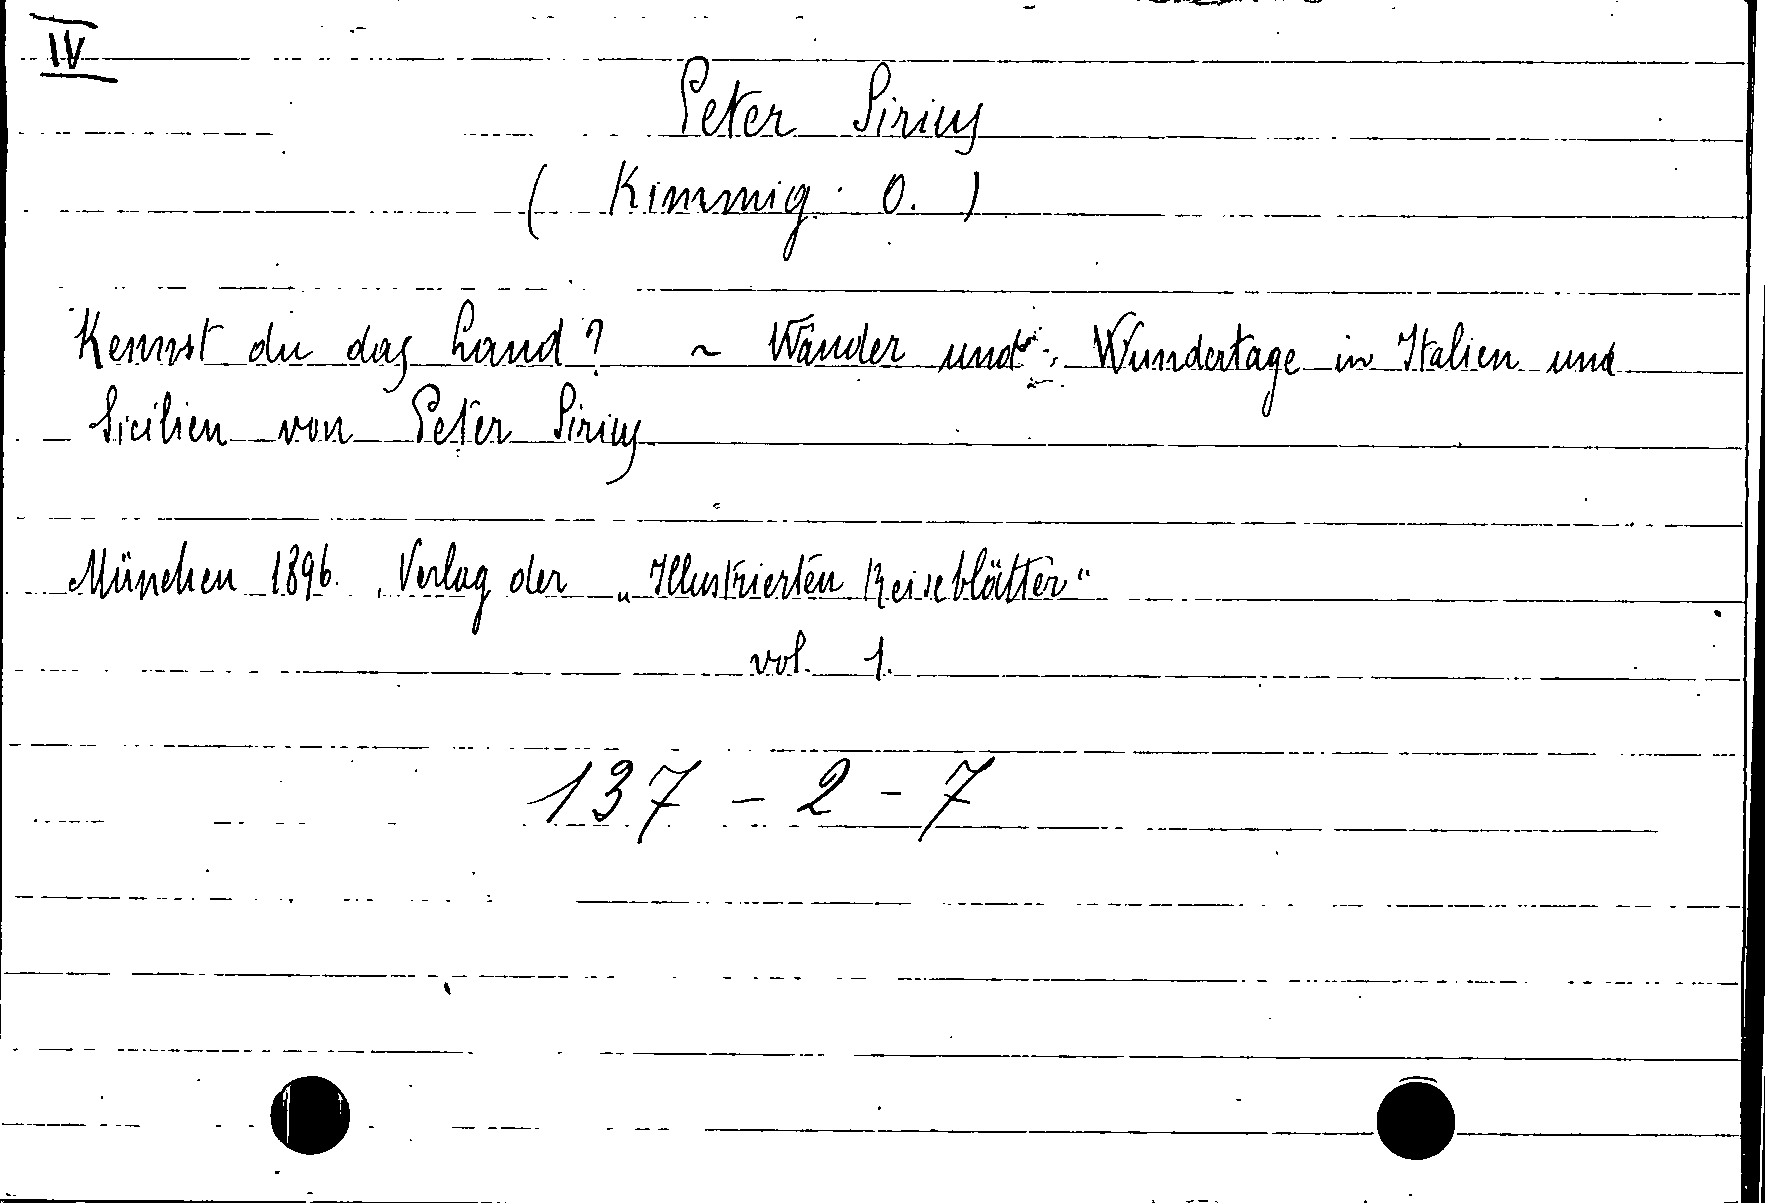 IV
Peter Sirius
( Kimmig. O. )
Kennst du das Land? ~ Wander und Wundertage in Italien und
Sicilien von Peter Sirius
München 1896. Verlag der „Illustrierten Reiseblätter“
vol. 1.
137 - 2 - 7